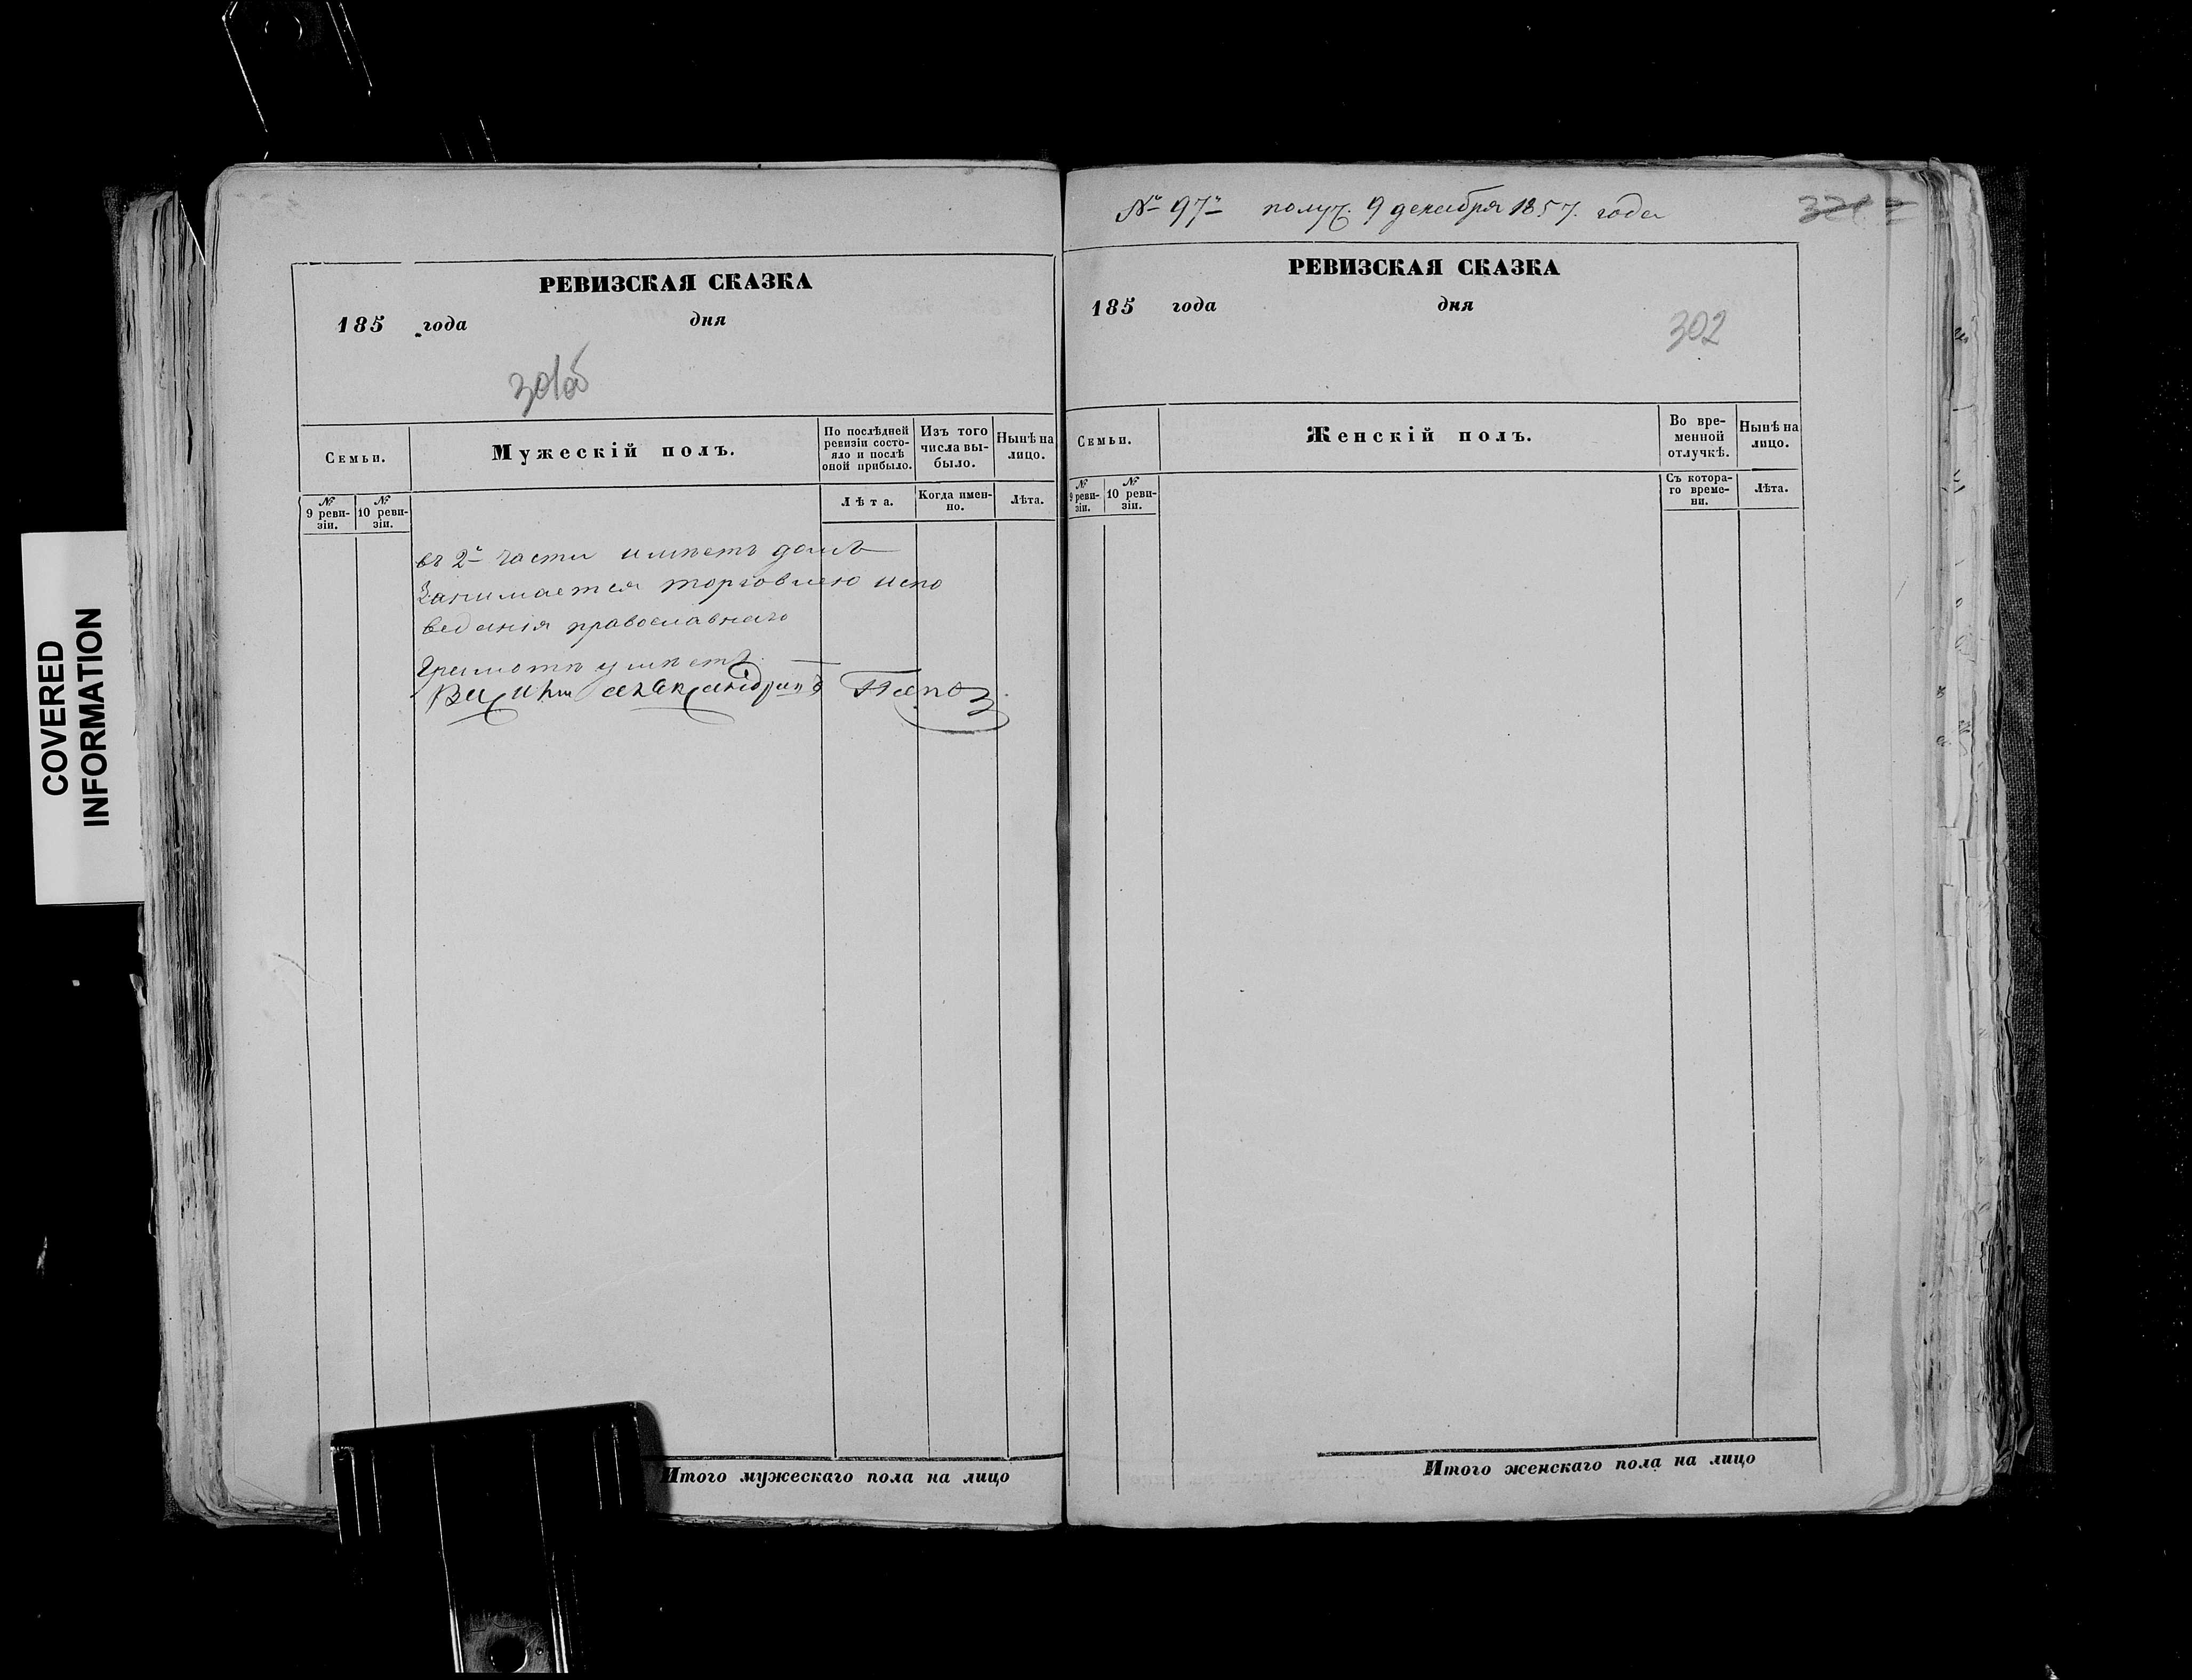 COVERED
INFORMATION
РЕВИЗСКАЯ СКАЗКА
185 года дня
301об
Семьи.
Мужескій полъ.
По послѣдней
ревизіи состо-
яло и послѣ
оной прибыло.
Изъ того
числа вы-
было.
Нынѣ на
лицо.
№
9 реви-
зіи.
№
10 реви-
зіи.
Лѣта.
Когда имен-
но.
Лѣта.
въ 2й части имѣетъ домъ
Занимается торговлею испо
веданія православнаго
Грамотѣ умѣетъ
Итого мужескаго пола на лицо
№ 97й получ. 9 декабря 1857. года
РЕВИЗСКАЯ СКАЗКА
185 года дня
302
Семьи.
Женскій полъ.
Во вре-
менной
отлучкѣ.
Нынѣ на
лицо.
№
9 реви-
зіи.
№
10 реви-
зіи.
Съ котора-
го време-
ни.
Лѣта.
Итого женскаго пола на лицо